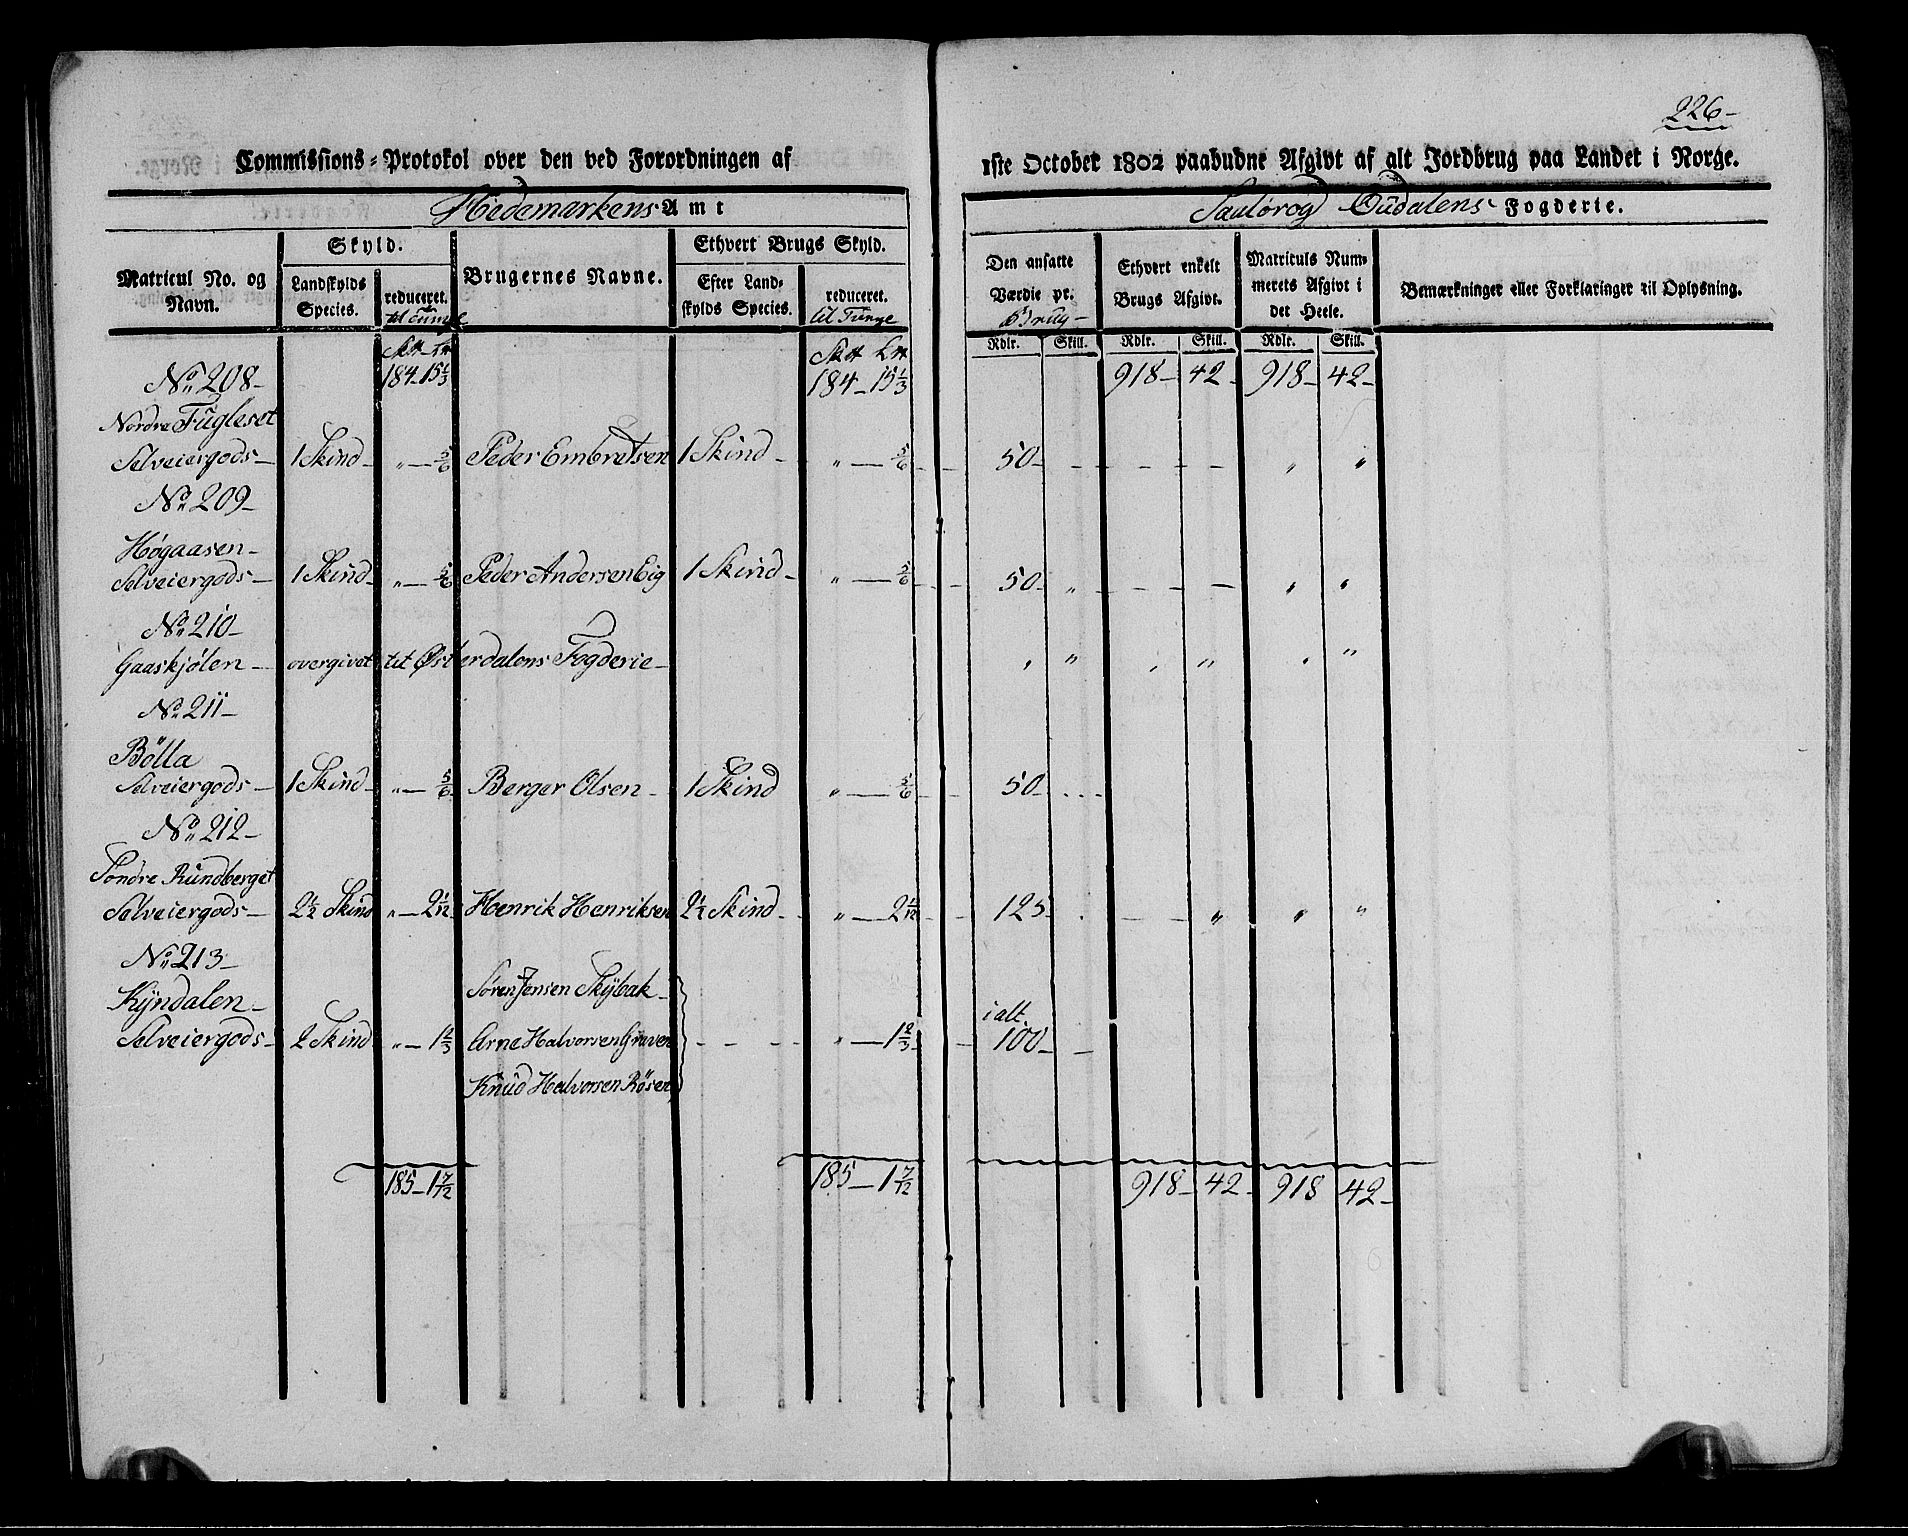 226-
Commissions-Protokol over den ved Forordningen af 1ste October 1802 paabudne Afgivt af alt Jordbrug paa Landet i Norge.
Hedemarkens Amt
Soulør og Oudalens Fogderie.
Matricul No. og Navn.
Skyld.
Landskylds Species.
reduceret. til Tunge
Brugernes Navne.
Ethvert Brugs Skyld.
Efter Landskylds Species.
reduceret. til Tunge
Den ansatte Værdie pr. Brug-
Ethvert enkelt Brugs Afgivt.
Matriculs Nummerets Afgivt i det Heele.
Bemærkninger eller Forklaringer til Oplysning.
Rdlr. Skill. Rdlr. Skill. Rdlr. Skill.
No. 208- 184-15 1/3 184-15 1/3 918-42- 918-42-
Nordre Fügleset
Selveiergods- 1 Skind- "-5/6 Peder Embretsen 1 Skind- "-5/6 50- " "
No. 209-
Høgaasen-
Selveiergods- 1 Skind- "-5/6 Peder Andersen Eig 1 Skind- "-5/6 50- " " "
No. 210-
Gaaskjølen- overgivet til Østerdalens Fogderie- " " " " " "
No. 211-
Bölla
Selveiergods- 1 Skind- "-5/6 Berger Olsen- 1 Skind "-5/6 50-
No. 212-
Søndre Rundberget
Selveiergods- 2 1/2 Skind "-2 1/12 Henrik Henriksen 2 1/2 Skind- "-2 1/12 125 " " "
No. 213-
Kÿndalen- Søren Jensen Skÿbak- i alt
Selveiergods- 2 Skind "-1 2/3 Arne Halvorsen Graven "-1 2/3 100-
Knud Halvorsen Rösen
185-1 7/12 185-1 7/12 918-42- 918 42-